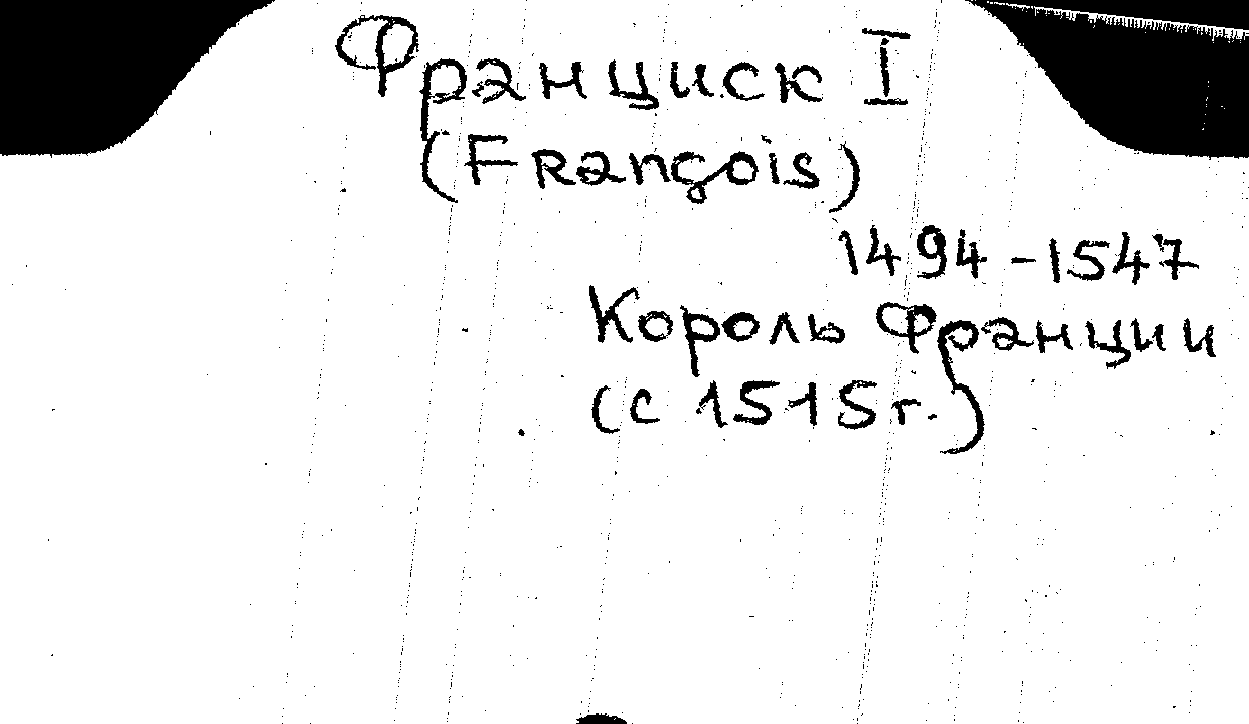 Франциск I
(François)
1494-1547
Король Франции
(с 1515г.)